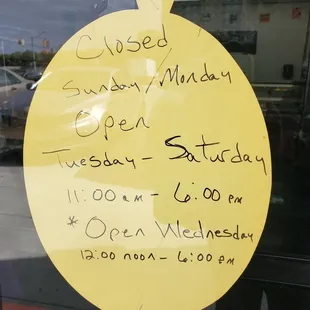 Closed
Sunday/Monday
Open
Tuesday - Saturday
11:00 am - 6:00 pm
* Open Wednesday
12:00 noon - 6:00 pm